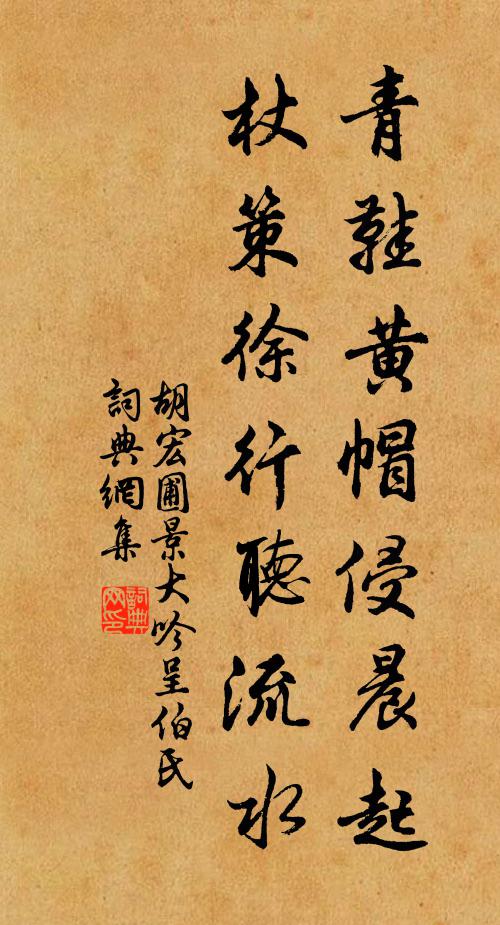 青鞋黃帽侵晨起
杖策徐行聽流水
胡宏圃景大吟呈伯氏
詞典網集
詞典网印